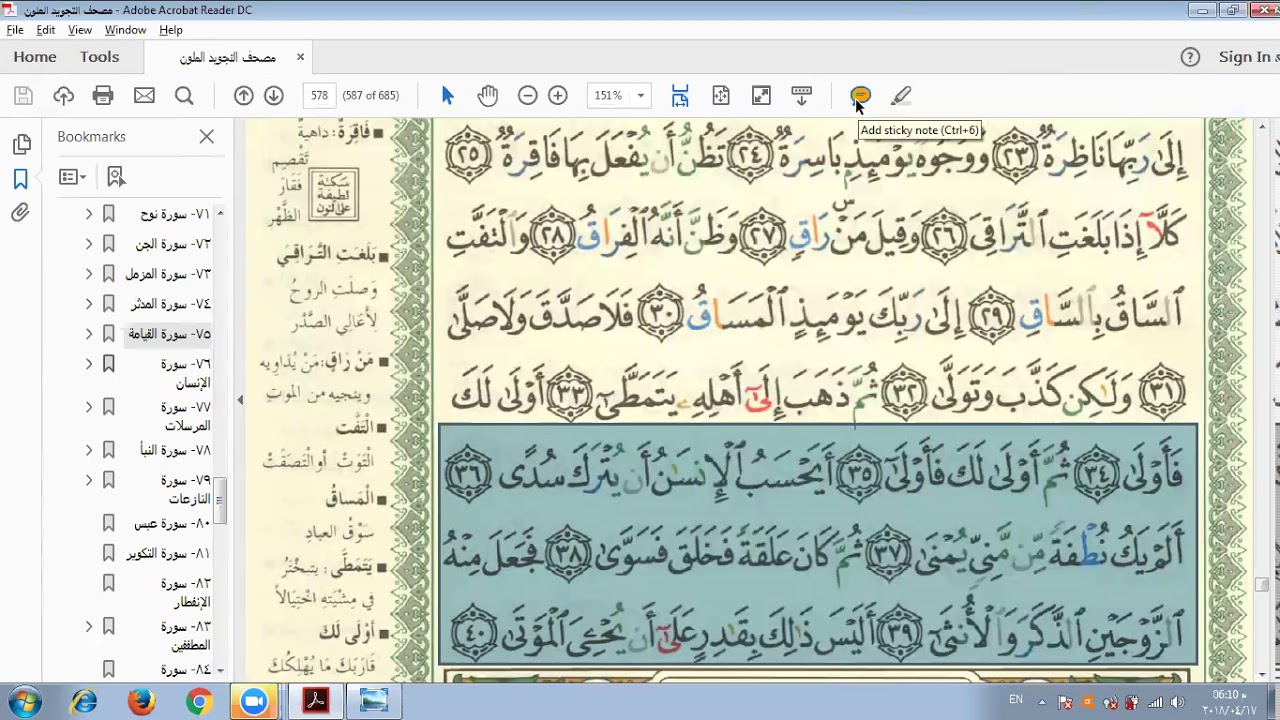 مصحف التجويد الملون - Adobe Acrobat Reader DC
File Edit View Window Help
Home Tools مصحف التجويد الملون × Sign In
578 (587 of 685) 151%
Add sticky note (Ctrl+6)
Bookmarks
٧١- سورة نوح
٧٢- سورة الجن
٧٣- سورة المزمل
٧٤- سورة المدثر
٧٥- سورة القيامة
٧٦- سورة
الإنسان
٧٧- سورة
المرسلات
٧٨- سورة النبأ
٧٩- سورة
النازعات
٨٠- سورة عبس
٨١- سورة التكوير
٨٢- سورة
الإنفطار
٨٣- سورة
المطففين
٨٤- سورة
■ فَاقِرَةٌ: داهيةٌ
تَقْصِم
فَقَارَ
الظَّهْر
سكتة
لطيفة
على النون
■ بَلَغَتِ التَّرَاقِيَ
وَصلَتِ الروحُ
لأعَالِي الصَّدْر
■ مَنْ رَاقٍ: مَنْ يُدَاوِيه
وينجيه من الموتِ
■ الْتَفَّت
الْتَوَتْ أو التصَقَتْ
■ الْمَسَاقُ
سَوْقُ العبادِ
■ يَتَمَطَّى: يتبخْتَرُ
في مِشْيَتِهِ اخْتِيَالاً
■ أَوْلَى لَكَ
قَارَبَكَ مَا يُهْلِكُكَ
إِلَىٰ رَبِّهَا نَاظِرَةٌ ٢٣ وَوُجُوهٌ يَوْمَئِذٍ بَاسِرَةٌ ٢٤ تَظُنُّ أَن يُفْعَلَ بِهَا فَاقِرَةٌ ٢٥
كَلَّآ إِذَا بَلَغَتِ ٱلتَّرَاقِيَ ٢٦ وَقِيلَ مَنْۜ رَاقٍ ٢٧ وَظَنَّ أَنَّهُ ٱلْفِرَاقُ ٢٨ وَٱلْتَفَّتِ
ٱلسَّاقُ بِٱلسَّاقِ ٢٩ إِلَىٰ رَبِّكَ يَوْمَئِذٍ ٱلْمَسَاقُ ٣٠ فَلَا صَدَّقَ وَلَا صَلَّىٰ
٣١ وَلَٰكِن كَذَّبَ وَتَوَلَّىٰ ٣٢ ثُمَّ ذَهَبَ إِلَىٰٓ أَهْلِهِۦ يَتَمَطَّىٰٓ ٣٣ أَوْلَىٰ لَكَ
فَأَوْلَىٰ ٣٤ ثُمَّ أَوْلَىٰ لَكَ فَأَوْلَىٰٓ ٣٥ أَيَحْسَبُ ٱلْإِنسَٰنُ أَن يُتْرَكَ سُدًى ٣٦
أَلَمْ يَكُ نُطْفَةً مِّن مَّنِىٍّ يُمْنَىٰ ٣٧ ثُمَّ كَانَ عَلَقَةً فَخَلَقَ فَسَوَّىٰ ٣٨ فَجَعَلَ مِنْهُ
ٱلزَّوْجَيْنِ ٱلذَّكَرَ وَٱلْأُنثَىٰٓ ٣٩ أَلَيْسَ ذَٰلِكَ بِقَٰدِرٍ عَلَىٰٓ أَن يُحْـِۧىَ ٱلْمَوْتَىٰ ٤٠
EN
06:10 م
٢٠١٨/٠٤/١٧